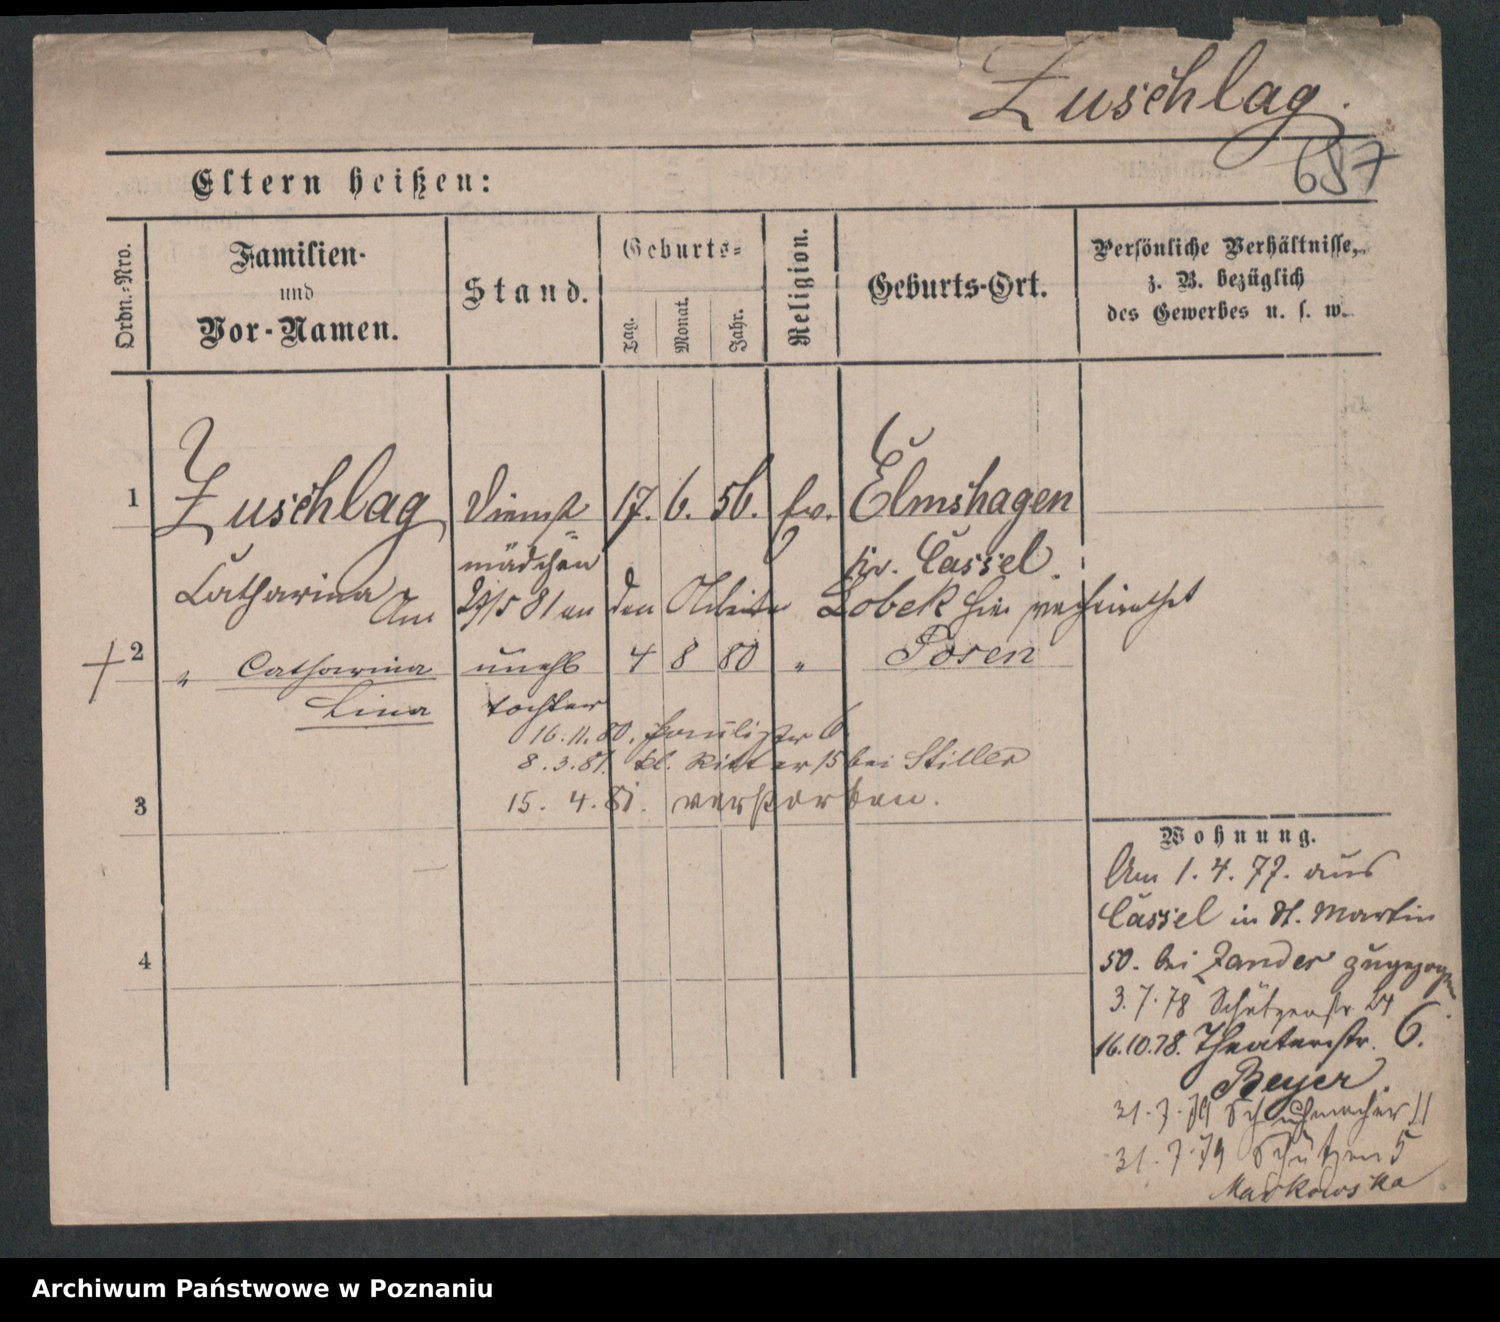 Zuschlag.
657
Eltern heißen:
Ordn.-Nro.
Familien-
und
Vor-Namen.
Stand.
Geburts-
Tag.
Monat.
Jahr.
Religion.
Geburts-Ort.
Persönliche Verhältnisse,
z. B. bezüglich
des Gewerbes u. s. w.
1 Zuschlag Dienst 17. 6. 56. ev. Elmshagen
mädchen Kr. Cassel.
Catharina Am 29/5 81 an den Lobek hier verheirathet
2 " Catharina unehl 4 8 80 " Posen
Lina tochter
16.11.80. 6
8.3.81. kl. Ritter 15 bei Stiller
3 15. 4. 81. verstorben.
4
Wohnung.
Am 1. 4. 77. aus
Cassel in St. Martin
50. bei Zander zugezogen.
3. 7. 78 Schützenstr 24
16.10.78. Theaterstr. 6.
Beyer.
31. 7. 79 Schuhmacher 11
31. 7. 79 Schützen 5
Markowska
Archiwum Państwowe w Poznaniu